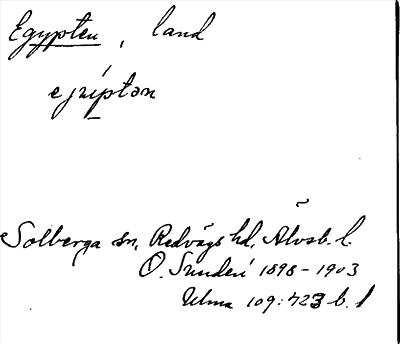 Egypten, land
ejiptən
Solberga sn, Redvägs hd, Älvsb. l.
O. Sundén 1898-1903
Ulma 109:723 b. 1